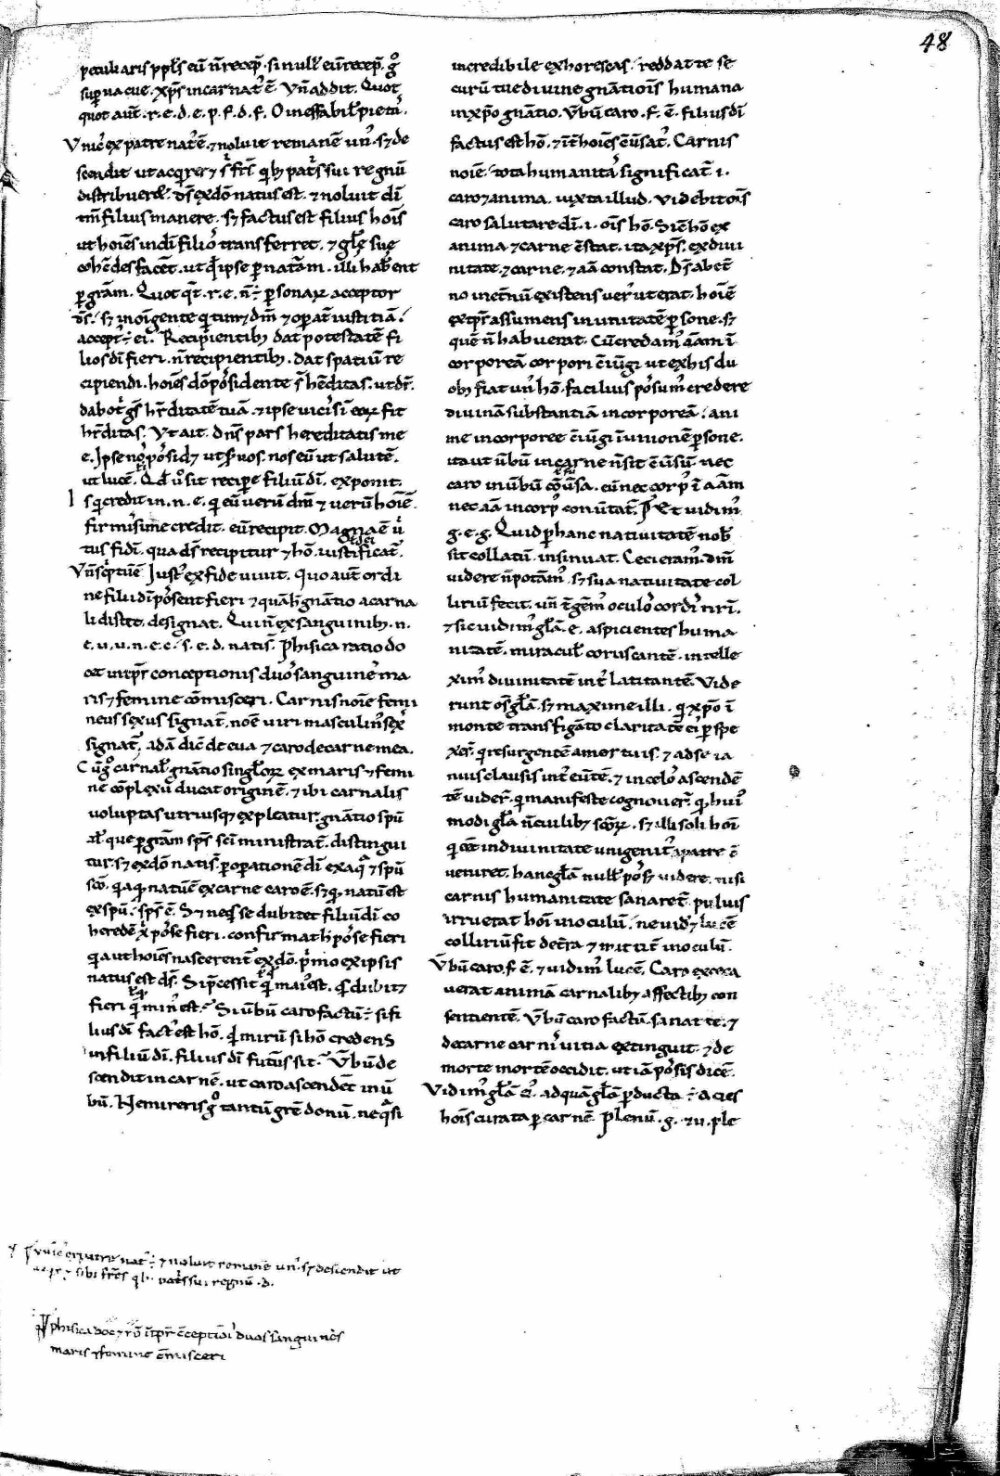 48
peculiaris ppl's eū n̄ recep̄. si null' eū recep̄. g°
sup̱uacue. xp̄s incarnat' ē. Vn̄ addit. Quot
quot aut̄. r. e. d. e. p. f. d. f. O ineffabil' pietas.
Vnic' ex patre nat' ē. ⁊ noluit remanē un'. sꝫ de
scendit ut acq̄reret sͥ fr̄s qͥbꝫ patͥs sui regnū
distribueret. d's ex dō natus est. ⁊ noluit dī
tm̄ filius manere. sꝫ factus est filius hoīs
ut hoīes in dī filiō transferret. ⁊ gl'e sue
cohēdes facēt. ut qđ ipse p̱ natām. illi habent
p̱ grām. Quot qt̄. r. e. n̄ ÷ p̱sonaꝝ acceptor
d's. sꝫ in oī gente qͥ timꝫ dm̄ ⁊ op̱at̄ iustitiā.
accept' ÷ ei. Recipientibꝫ dat potestatē fi
lios dī fieri. n̄ recipientibꝫ. dat spatiū re
cipiendi. hoīes dō possidente s̄ hēditas. ut dr̄.
dabo tͥ gs̄ hr̄ditatē tuā. ⁊ ipse uicisī eoꝝ fit
hr̄ditas. Vt ait. Dn̄s pars hereditatis me
e. Ipse nos possidꝫ ut seruos. nos eū ut salutē.
ut lucē. Qđ u° sit recipe filiū dī. exponit.
Is qͥ credit in. n. e. qͥ eū uerū dm̄ ⁊ uerū hoīem
firmissime credit. eū recipit. Magna ē uͥ
tus fidī. qua d's recipitur ⁊ hō. iustificat̄.
Vn̄ sc̄ptū ē Iust' ex fide uiuit. Quo aut̄ ordi
ne filii dī possent fieri ⁊ quā h̄ gnātio a carna
li distet. designat. Qui n̄ ex sanguinibꝫ. n.
e. u. u. n. e. c. s. e. d. natis̄. Phisica ratio do
cet intp̄r conceptionis duos sanguine ma
ris ⁊ femine cōmisceri. Carnis noīe femi
neus sexus signat̄. noīe uiri masculin' sex'
signat̄. adā dic̄ de eua ⁊ caro de carne mea.
Cū g° carnal' gnātio singl'oꝝ ex maris ⁊ femi
ne cōplexu ducat originē. ⁊ ibi carnalis
uoluptas utriusqꝫ expleatur. gnātio spū
al' que p̱ grām sp̄s sc̄i ministrat̄. distingui
tur. sꝫ ex dō natis̄. p̱ op̱ationē dī ex aqᵃ ⁊ spū
sc̄o. qͥa qͥ natū ē ex carne caro ē. sꝫ qͥ natū est
ex spū. sp̄s ē. Sꝫ neqͥs se dubitet filiū dī co
heredē xp̄i posse fieri. confirmat h̄ posse fieri
qͥa ut hoīes nascerent̄ ex dō. pͥmo ex ipsis
natus est d's. Si p̄cessit qđ mai' est. qđ dubitꝫ
fieri qđ min' est. Si uerbū caro factū ÷ si fi
lius dī fact' est hō. qđ mirū si hō credens
in filiū dī. filius dī futur' sit. Vbū de
scendit in carnē. ut caro ascendēt in ū
bū. Ne mireris g° tantū grē donū. ne qͣsi
incredibile exhorescas. reddat te se
curū tue diuine gnātiois humana
in xp̄o gnātio. Vbū caro. f. ē. filius dī
factus est hō. ⁊ int̄ hoīes cōu'sat'. Carnis
noīe tota humanitas significat̄. i.
caro ⁊ anima. iuxta illud. Videbit oīs
caro salutare dī. i. oīs hō. Sic n̄ hō ex
anima ⁊ carne cōstat. ita xp̄s. ex diui
nitate ⁊ carne. ⁊ aīa constat. D's ab et̄
no in et̄nū existens uer' ut erat. hoīem
ex tp̄re assumens in unitatē p̱sone. sꝫ
quē n̄ habuerat. Cū credam' aīam ī
corporeā corpori cōiūgi ut ex his du
obꝫ fiat un' hō. facilius possum' credere
diuinā substantiā incorporeā. ani
me incorporee cōiūgi ī unionē p̱sone.
ita ut ūbū in carne n̄ sit cōu'sū. nec
caro in ūbū cōu'sa. cū nec corp' ī aīam
nec aīa in corp' conu'tat̄. Et uidim'.
g. e. g. Quid p̱ hanc natiuitatē nob̄
sit collatū. insinuat. Ceci eram'. dm̄
uidere n̄ potam'. sꝫ sua natiuitate col
liriū fecit. un̄ oculos cordis nr̄i.
⁊ sic uidim' gl'am. e. aspicientes huma
nitatē. miracul' coruscantē. intelle
xim' diuinitatē int̄ latitantē. Vide
runt oīs gl'am. sꝫ maxime illi. qͥ xp̄o ī
monte transfigᵃto claritatē ei' p̱spe
xer̄. qͥ resurgentē a mortuis. ⁊ ad se ia
nuis clausis int̄eūtē. ⁊ in celos ascendē
tē uider̄. qͥ manifeste cognouer̄. qͥ hui'
modi gl'a n̄ cuilibꝫ sc̄oꝝ. sꝫ illi soli hoī
qͥ cēt in diuinitate unigenit' a patre cō
ueniret. hanc gl'am null' posset uidere. nisi
carnis humanitate sanaret̄. puluis
irruerat hoī in oculū. ne uidꝫ lucē
colliriū fit de tr̄a ⁊ mittit̄ in oculū.
Vbū caro. f. ē. ⁊ uidim' lucē. Caro exceca
uerat animā carnalibꝫ affectibꝫ con
sentientē. Vbū caro factū. sanat te. ⁊
de carne carnis uitia extinguit. ⁊ de
morte mortē occidit. ut iā possis dicē.
Vidim' gl'am e'. ad quā gl'am p̱ducta ÷ acies
hoīs curata p̱ carnē. Plenū. g. ⁊ u. ple
unic' ex patre nat' ÷ ⁊ noluit remanē un'. sꝫ descendit ut
sibi fr̄es patͥs sui regnū. d.
phisica docꝫ rō ītp̄r cōceptiōis duos sanguines
maris ⁊ femine cōmisceri